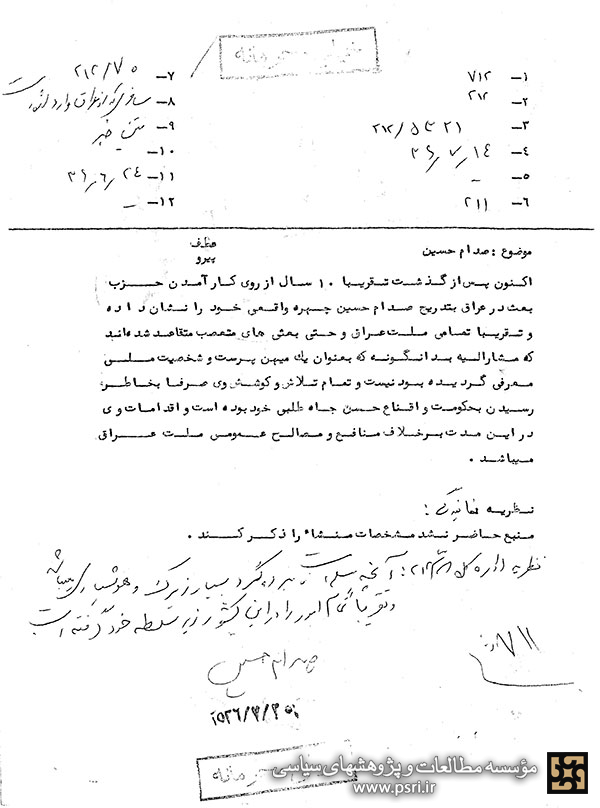 خیلی محرمانه
۱- ۷۱۲
۲- ۲۱۲
۳- ۲۱۲/۵۳۲۱
۴- ۳۶/۷/۱۴
۵- -
۶- ۲۱۱
۷- ۲۱۲/۷۰
۸-
۹- متن خبر
۱۰-
۱۱- ۳۶/۶/۲۴
۱۲- -
موضوع : صدام حسین
عطف
پیرو
اکنون پس از گذشت تقریبا ۱۰ سال از روی کار آمدن حزب
بعث در عراق بتدریج صدام حسین چهره واقعی خود را نشان داده
و تقریبا تمامی ملت عراق و حتی بعثی های متعصب متقاعد شده‌اند
که مشارالیه بدانگونه که بعنوان یك میهن پرست و شخصیت ملی
معرفی گردیده بود نیست و تمام تلاش و کوشش وی صرفا بخاطر
رسیدن بحکومت و اقناع حسن جاه طلبی خود بوده است و اقدامات وی
در این مدت برخلاف منافع و مصالح عمومی ملت عراق
میباشد .
نظریه نمایندگی :
منبع حاضر نشد مشخصات منشاء را ذکر کند .
نظریه اداره کل : آنچه مسلم است نامبرده مردی بسیار زیرک و هوشیار میباشد
و تقریباً تمام امور را در این کشور زیر سلطه خود گرفته است
صدام حسین
۲۵۳۶/۳/۳۰
۷۱۱
محرمانه
مؤسسه مطالعات و پژوهشهای سیاسی
www.psri.ir